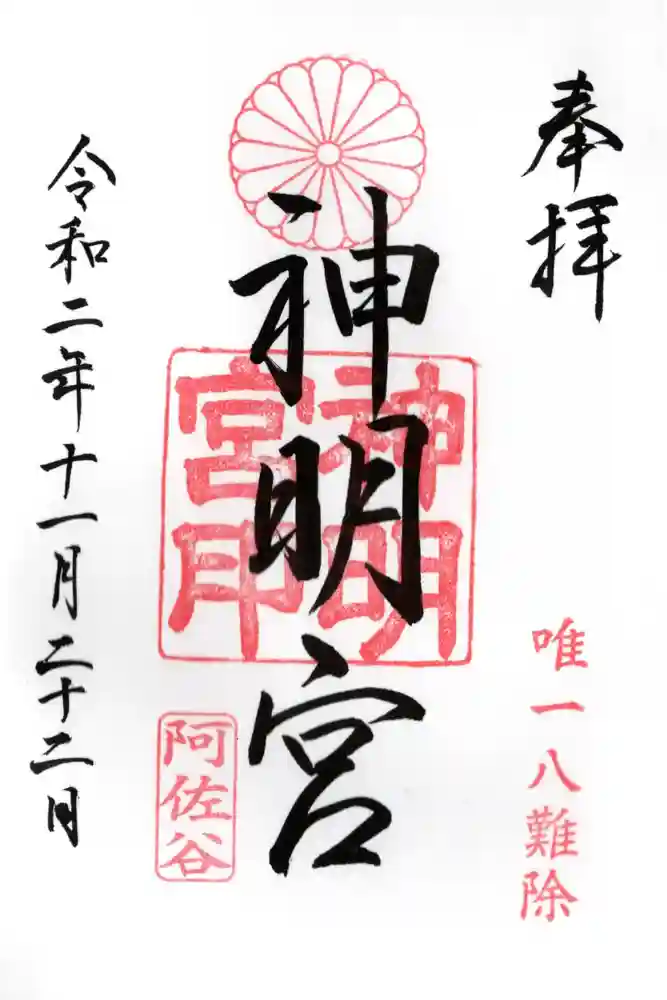 奉拝
唯一八難除
神明宮
神明宮印
阿佐谷
令和二年十一月二十二日